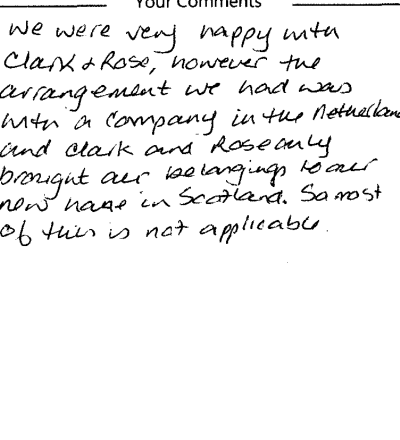 Your Comments
We were very happy with
Clark & Rose, however the
arrangement we had was
with a company in the Netherland
and Clark and Rose only
brought our belongings to our
new home in Scotland. So most
of this is not applicable.